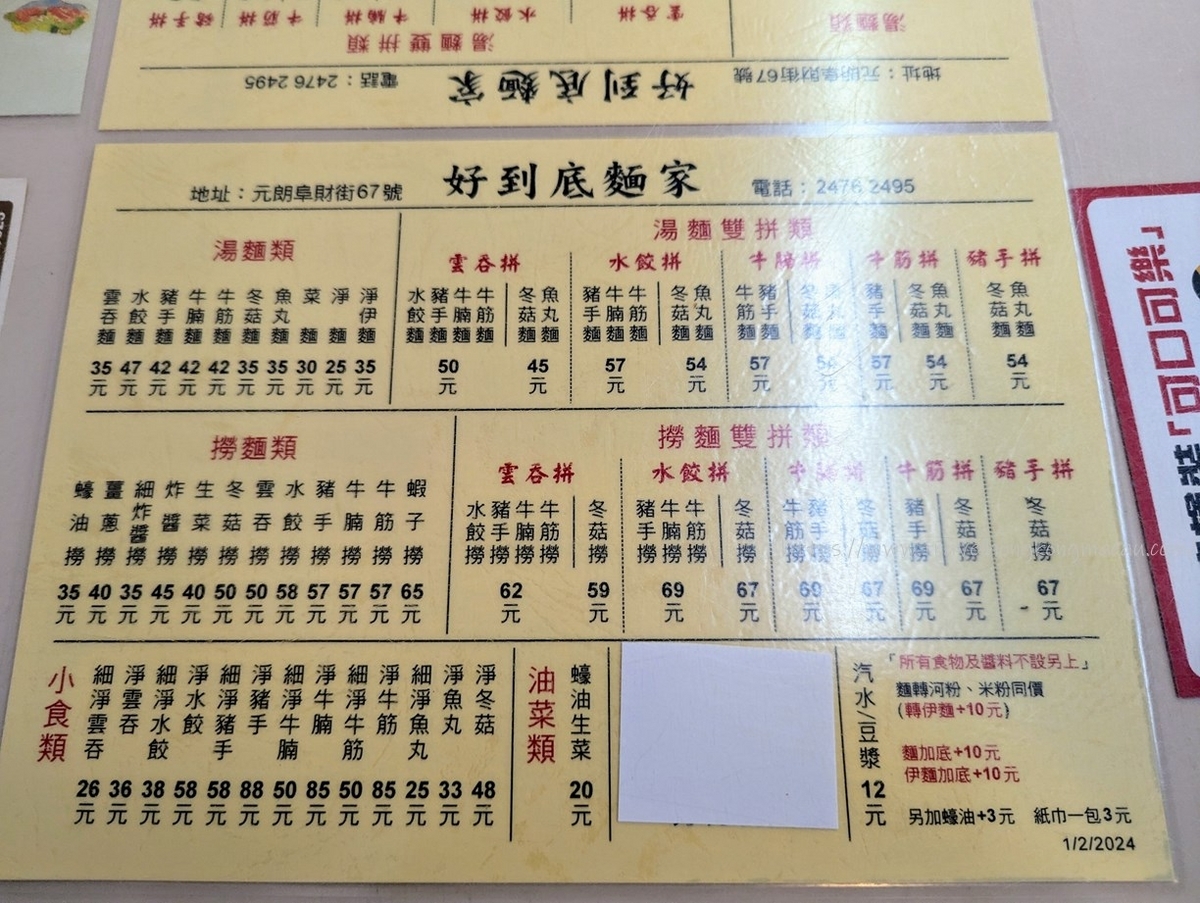 湯麵類
雲吞拼 水餃拼 牛腩拼 牛筋拼 豬手拼
湯麵雙拼類
地址：元朗阜財街67號 好到底麵家 電話：2476 2495
地址：元朗阜財街67號 好到底麵家 電話：2476 2495
湯麵類
雲吞麵 水餃麵 豬手麵 牛腩麵 牛筋麵 冬菇麵 魚丸麵 菜麵 淨麵 淨伊麵
35元 47元 42元 42元 42元 35元 35元 30元 25元 35元
湯麵雙拼類
雲吞拼 水餃拼 牛腩拼 牛筋拼 豬手拼
水餃麵 豬手麵 牛腩麵 牛筋麵 冬菇麵 魚丸麵
50元 45元
豬手麵 牛腩麵 牛筋麵 冬菇麵 魚丸麵
57元 54元
牛筋麵 豬手麵 冬菇麵
57元
豬手麵 冬菇麵 魚丸麵
57元 54元
冬菇麵 魚丸麵
54元
撈麵類
蠔油撈 薑蔥撈 細炸醬撈 炸醬撈 生菜撈 冬菇撈 雲吞撈 水餃撈 豬手撈 牛腩撈 牛筋撈 蝦子撈
35元 40元 35元 45元 40元 50元 50元 58元 57元 57元 57元 65元
撈麵雙拼類
雲吞拼 水餃拼 牛腩拼 牛筋拼 豬手拼
水餃撈 豬手撈 牛腩撈 牛筋撈 冬菇撈
62元 59元
豬手撈 牛腩撈 牛筋撈 冬菇撈
69元 67元
牛筋撈 豬手撈 冬菇撈
69元 67元
豬手撈 冬菇撈
69元 67元
冬菇撈
67元
小食類
細淨雲吞 淨雲吞 細淨水餃 淨水餃 細淨豬手 淨豬手 細淨牛腩 淨牛腩 細淨牛筋 淨牛筋 細淨魚丸 淨魚丸 淨冬菇
26元 36元 38元 58元 58元 88元 50元 85元 50元 85元 25元 33元 48元
油菜類
蠔油生菜
20元
汽水/豆漿
12元
「所有食物及醬料不設另上」
麵轉河粉、米粉同價
(轉伊麵+10元)
麵加底+10元
伊麵加底+10元
另加蠔油+3元 紙巾一包3元
1/2/2024
「可口可樂」